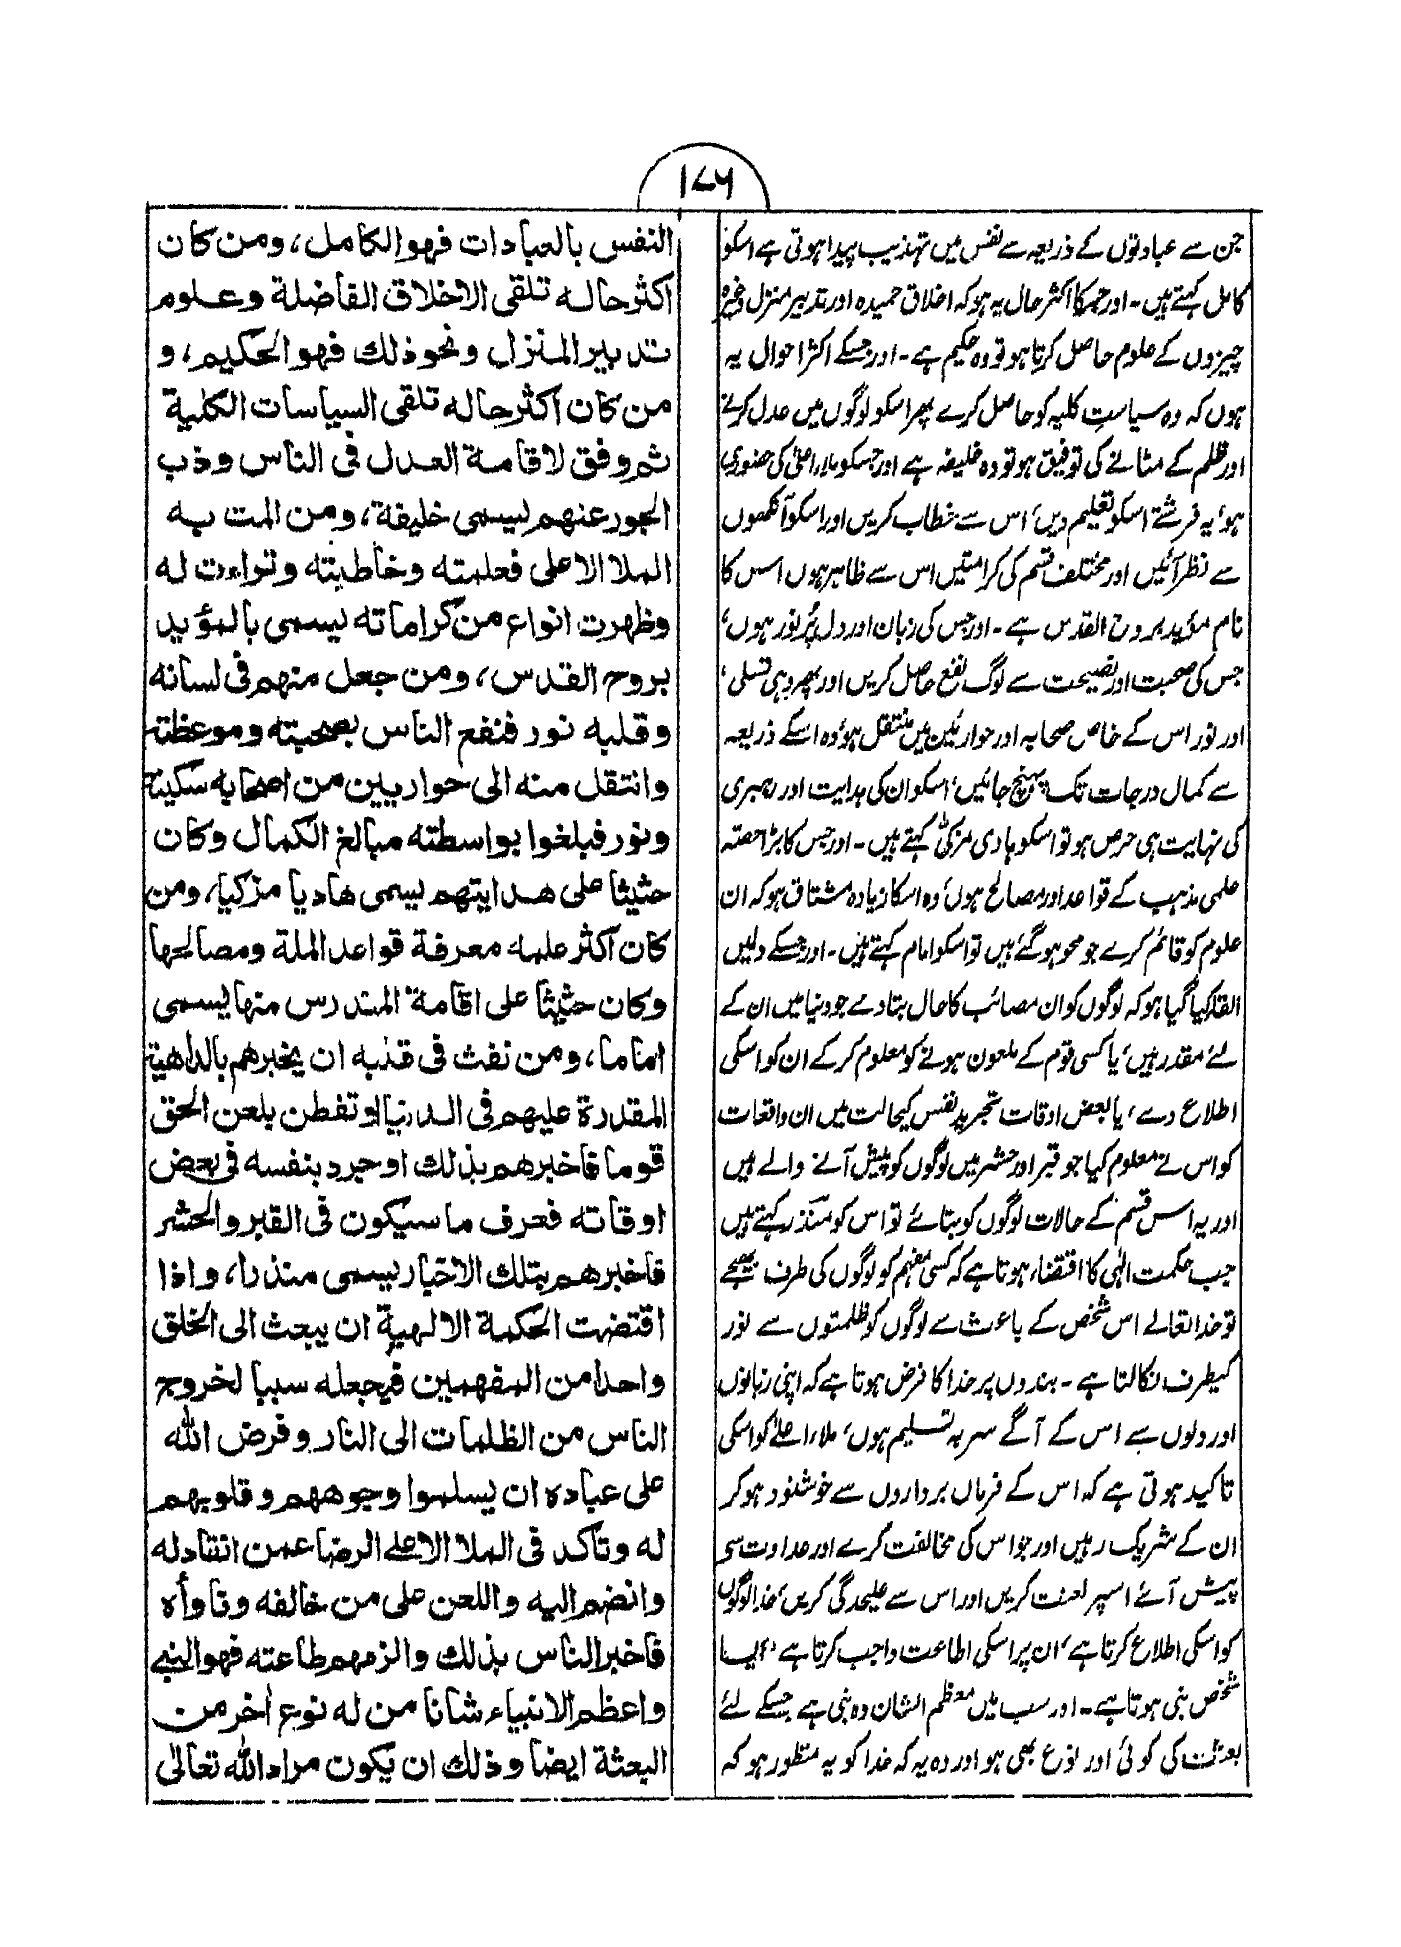 ۱۷۶
جن سے عبادتوں کے ذریعہ سے نفس میں تہذیب پیدا ہوتی ہے اسکو
کامل کہتے ہیں۔ اور جسکا اکثر حال یہ ہو کہ اخلاق حمیدہ اور تدبیر منزل وغیرہ
چیزوں کے علوم حاصل کرتا ہو تو وہ حکیم ہے۔ اور جسکے اکثر احوال یہ
ہوں کہ وہ سیاست کلیہ کو حاصل کرے پھر اسکو لوگوں میں عدل کرنے
اور ظلم کے مٹانے کی توفیق ہو تو وہ خلیفہ ہے اور جسکو ملاء اعلیٰ کی حضوری
ہو، یہ فرشتے اسکو تعلیم دیں، اس سے خطاب کریں اور اسکو آنکھوں
سے نظر آئیں اور مختلف قسم کی کرامتیں اس سے ظاہر ہوں اس کا
نام مؤید بروح القدس ہے۔ اور جس کی زبان اور دل پُر نور ہوں،
جس کی صحبت اور نصیحت سے لوگ نفع حاصل کریں اور پھر وہی تسلی،
اور نور اس کے خاص صحابہ اور حوارئین میں منتقل ہو، وہ اسکے ذریعہ
سے کمال درجات تک پہنچ جائیں، اسکو ان کی ہدایت اور رہبری
کی نہایت ہی حرص ہو تو اسکو ہادی مزکی کہتے ہیں۔ اور جس کا بڑا حصّہ
علمی مذہب کے قواعد اور مصالح ہوں، وہ اسکا زیادہ مشتاق ہو کہ ان
علوم کو قائم کرے جو محو ہو گئے ہیں تو اسکو امام کہتے ہیں۔ اور جسکے دلیں
القا کیا گیا ہو کہ لوگوں کو ان مصائب کا حال بتا دے جو دنیا میں ان کے
لئے مقدر ہیں، یا کسی قوم کے ملعون ہونے کو معلوم کر کے ان کو اسکی
اطلاع دے، یا بعض اوقات تجرید نفس کیحالت میں ان واقعات
کو اس نے معلوم کیا جو قبر اور حشر میں لوگوں کو پیش آنے والے ہیں
اور یہ اس قسم کے حالات لوگوں کو بتائے تو اس کو منذر کہتے ہیں
جب حکمت الٰہی کا اقتضاء ہوتا ہے کہ کسی مفہم کو لوگوں کی طرف بھیجے
تو خدا تعالے اس شخص کے باعث سے لوگوں کو ظلمتوں سے نور
کیطرف نکالتا ہے۔ بندوں پر خدا کا فرض ہوتا ہے کہ اپنی زبانوں
اور دلوں سے اس کے آگے سر بہ تسلیم ہوں، ملاء اعلے کو اسکی
تاکید ہوتی ہے کہ اس کے فرماں برداروں سے خوشنود ہو کر
ان کے شریک رہیں اور جو اس کی مخالفت کرے اور عداوت سے
پیش آئے اسپر لعنت کریں اور اس سے علیحدگی کریں، خدا لوگوں
کو اسکی اطلاع کرتا ہے، ان پر اسکی اطاعت واجب کرتا ہے، ایسا
شخص نبی ہوتا ہے۔ اور سب میں معظم الشان وہ نبی ہے جسکے لئے
بعثت کی کوئی اور نوع بھی ہو اور وہ یہ کہ خدا کو یہ منظور ہو کہ
النفس بالعبادات فهو الكامل، ومن كان
اكثر حاله تلقى الاخلاق الفاضلة وعلوم
تدبير المنزل ونحو ذلك فهو الحكيم، و
من كان اكثر حاله تلقى السياسات الكلية
ثم وفق لاقامة العدل فى الناس وذب
الجور عنهم ليسمى خليفة، ومن المت به
الملا الاعلى فعلمته وخاطبته وتراءت له
وظهرت انواع من كراماته يسمى بالمؤيد
بروح القدس، ومن جعل منهم فى لسانه
وقلبه نور فنفع الناس بصحبته وموعظته
وانتقل منه الى حواريين من اصحابه سكينة
ونور فبلغوا بواسطته مبالغ الكمال وكان
حثيثا على هدايتهم يسمى هاديا مزكيا، ومن
كان اكثر علمه معرفة قواعد الملة ومصالحها
وكان حثيثا على اقامة المندرس منها يسمى
اماما، ومن نفث فى قلبه ان يخبرهم بالداهية
المقدرة عليهم فى الدنيا او تفطن بلعن الحق
قوما فاخبرهم بذلك او جرد بنفسه فى بعض
اوقاته فعرف ما سيكون فى القبر والحشر
فاخبرهم بتلك الاخبار يسمى منذرا، واذا
اقتضت الحكمة الالهية ان يبعث الى الخلق
واحدا من المفهمين فيجعله سببا لخروج
الناس من الظلمات الى النار وفرض الله
على عباده ان يسلموا وجوههم وقلوبهم
له وتاكد فى الملا الاعلى الرضا عمن انقاد له
وانضم اليه واللعن على من خالفه وناوأه
فاخبر الناس بذلك والزمهم طاعته فهو النبى
واعظم الانبياء شانا من له نوع أخر من
البعثة ايضا وذلك ان يكون مراد الله تعالى